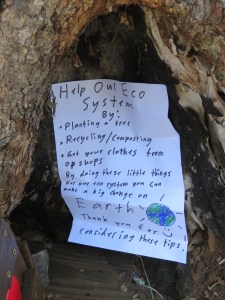 Help Our Eco
System
By:
• Planting a tree
• Recycling/Composting
• Get your clothes from
op shops
By doing these little things
for our eco system you can
make a big change on
Earth
Thank you for
considering these tips.